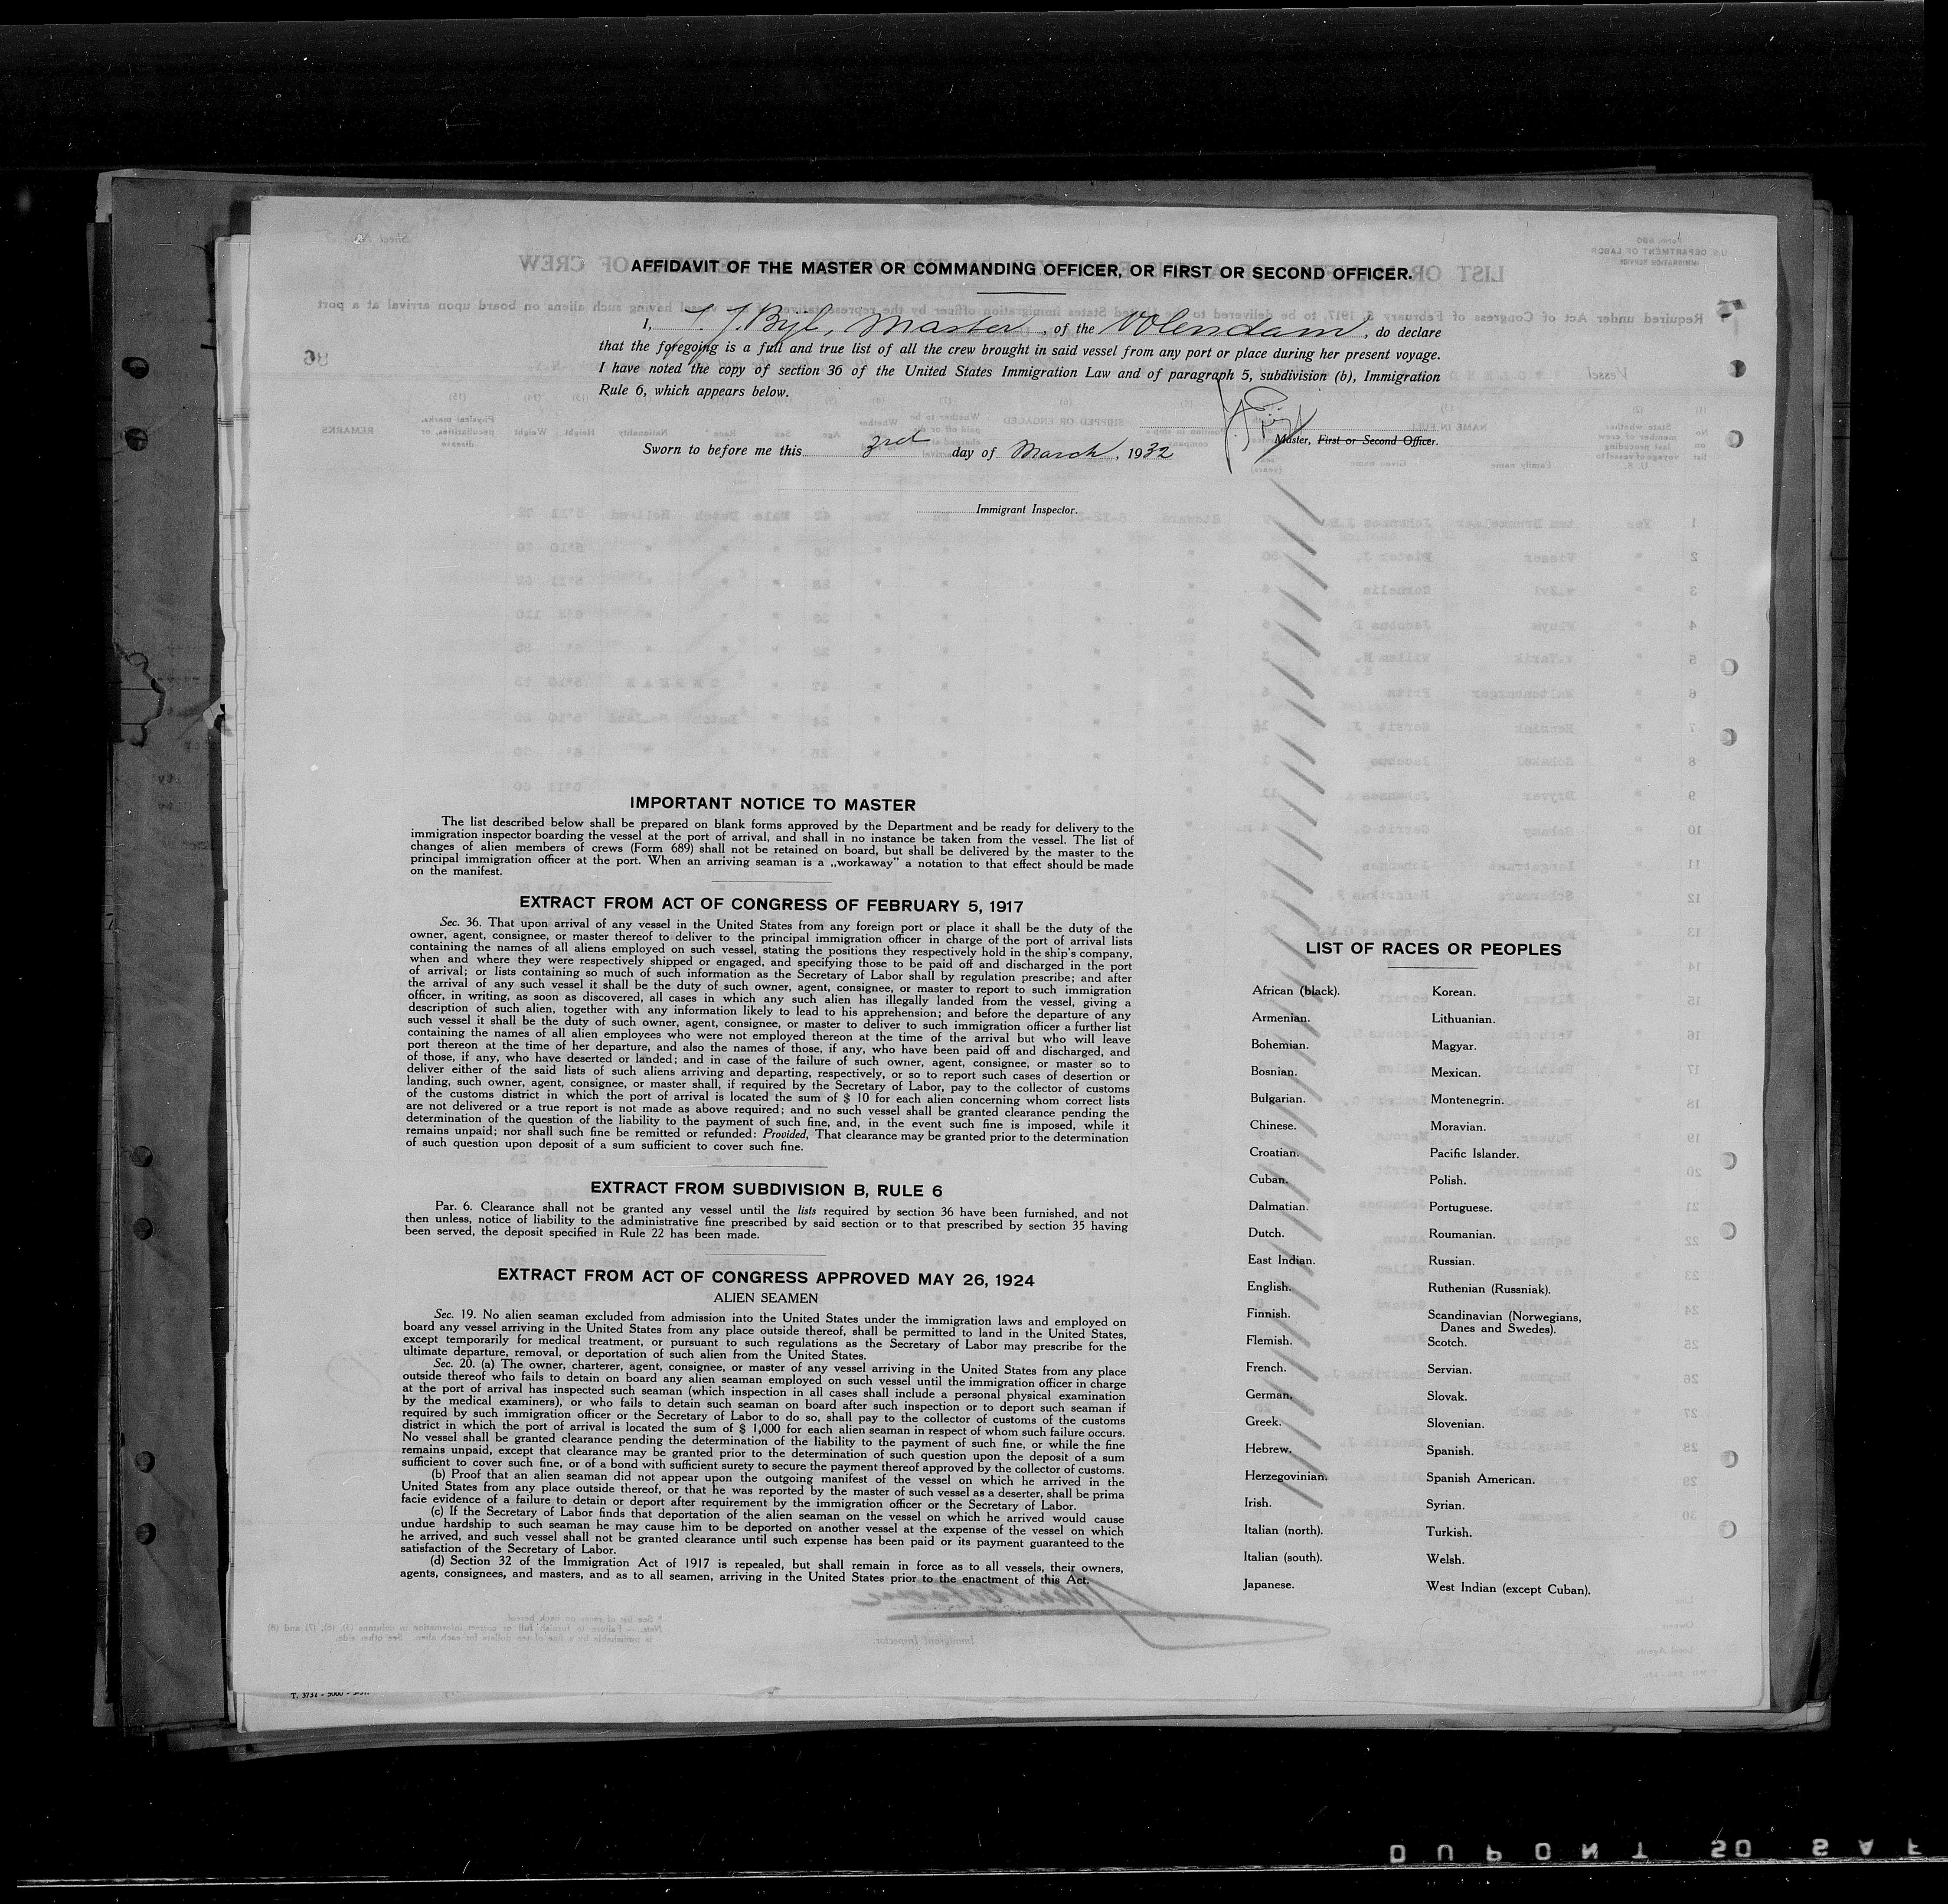 AFFIDAVIT OF THE MASTER OR COMMANDING OFFICER, OR FIRST OR SECOND OFFICER.
I, J. J. Bijl, Master, of the Volendam, do declare
that the foregoing is a full and true list of all the crew brought in said vessel from any port or place during her present voyage.
I have noted the copy of section 36 of the United States Immigration Law and of paragraph 5, subdivision (b), Immigration
Rule 6, which appears below.
Master, First or Second Officer.
Sworn to before me this 3rd day of March, 1932
Immigrant Inspector.
IMPORTANT NOTICE TO MASTER
The list described below shall be prepared on blank forms approved by the Department and be ready for delivery to the
immigration inspector boarding the vessel at the port of arrival, and shall in no instance be taken from the vessel. The list of
changes of alien members of crews (Form 689) shall not be retained on board, but shall be delivered by the master to the
principal immigration officer at the port. When an arriving seaman is a „workaway” a notation to that effect should be made
on the manifest.
EXTRACT FROM ACT OF CONGRESS OF FEBRUARY 5, 1917
Sec. 36. That upon arrival of any vessel in the United States from any foreign port or place it shall be the duty of the
owner, agent, consignee, or master thereof to deliver to the principal immigration officer in charge of the port of arrival lists
containing the names of all aliens employed on such vessel, stating the positions they respectively hold in the ship's company,
when and where they were respectively shipped or engaged, and specifying those to be paid off and discharged in the port
of arrival; or lists containing so much of such information as the Secretary of Labor shall by regulation prescribe; and after
the arrival of any such vessel it shall be the duty of such owner, agent, consignee, or master to report to such immigration
officer, in writing, as soon as discovered, all cases in which any such alien has illegally landed from the vessel, giving a
description of such alien, together with any information likely to lead to his apprehension; and before the departure of any
such vessel it shall be the duty of such owner, agent, consignee, or master to deliver to such immigration officer a further list
containing the names of all alien employees who were not employed thereon at the time of the arrival but who will leave
port thereon at the time of her departure, and also the names of those, if any, who have been paid off and discharged, and
of those, if any, who have deserted or landed; and in case of the failure of such owner, agent, consignee, or master so to
deliver either of the said lists of such aliens arriving and departing, respectively, or so to report such cases of desertion or
landing, such owner, agent, consignee, or master shall, if required by the Secretary of Labor, pay to the collector of customs
of the customs district in which the port of arrival is located the sum of $ 10 for each alien concerning whom correct lists
are not delivered or a true report is not made as above required; and no such vessel shall be granted clearance pending the
determination of the question of the liability to the payment of such fine, and, in the event such fine is imposed, while it
remains unpaid; nor shall such fine be remitted or refunded: Provided, That clearance may be granted prior to the determination
of such question upon deposit of a sum sufficient to cover such fine.
EXTRACT FROM SUBDIVISION B, RULE 6
Par. 6. Clearance shall not be granted any vessel until the lists required by section 36 have been furnished, and not
then unless, notice of liability to the administrative fine prescribed by said section or to that prescribed by section 35 having
been served, the deposit specified in Rule 22 has been made.
EXTRACT FROM ACT OF CONGRESS APPROVED MAY 26, 1924
ALIEN SEAMEN
Sec. 19. No alien seaman excluded from admission into the United States under the immigration laws and employed on
board any vessel arriving in the United States from any place outside thereof, shall be permitted to land in the United States,
except temporarily for medical treatment, or pursuant to such regulations as the Secretary of Labor may prescribe for the
ultimate departure, removal, or deportation of such alien from the United States.
Sec. 20. (a) The owner, charterer, agent, consignee, or master of any vessel arriving in the United States from any place
outside thereof who fails to detain on board any alien seaman employed on such vessel until the immigration officer in charge
at the port of arrival has inspected such seaman (which inspection in all cases shall include a personal physical examination
by the medical examiners), or who fails to detain such seaman on board after such inspection or to deport such seaman if
required by such immigration officer or the Secretary of Labor to do so, shall pay to the collector of customs of the customs
district in which the port of arrival is located the sum of $ 1,000 for each alien seaman in respect of whom such failure occurs.
No vessel shall be granted clearance pending the determination of the liability to the payment of such fine, or while the fine
remains unpaid, except that clearance may be granted prior to the determination of such question upon the deposit of a sum
sufficient to cover such fine, or of a bond with sufficient surety to secure the payment thereof approved by the collector of customs.
(b) Proof that an alien seaman did not appear upon the outgoing manifest of the vessel on which he arrived in the
United States from any place outside thereof, or that he was reported by the master of such vessel as a deserter, shall be prima
facie evidence of a failure to detain or deport after requirement by the immigration officer or the Secretary of Labor.
(c) If the Secretary of Labor finds that deportation of the alien seaman on the vessel on which he arrived would cause
undue hardship to such seaman he may cause him to be deported on another vessel at the expense of the vessel on which
he arrived, and such vessel shall not be granted clearance until such expense has been paid or its payment guaranteed to the
satisfaction of the Secretary of Labor.
(d) Section 32 of the Immigration Act of 1917 is repealed, but shall remain in force as to all vessels, their owners,
agents, consignees, and masters, and as to all seamen, arriving in the United States prior to the enactment of this Act.
LIST OF RACES OR PEOPLES
African (black).
Armenian.
Bohemian.
Bosnian.
Bulgarian.
Chinese.
Croatian.
Cuban.
Dalmatian.
Dutch.
East Indian.
English.
Finnish.
Flemish.
French.
German.
Greek.
Hebrew.
Herzegovinian.
Irish.
Italian (north).
Italian (south).
Japanese.
Korean.
Lithuanian.
Magyar.
Mexican.
Montenegrin.
Moravian.
Pacific Islander.
Polish.
Portuguese.
Roumanian.
Russian.
Ruthenian (Russniak).
Scandinavian (Norwegians,
Danes and Swedes).
Scotch.
Servian.
Slovak.
Slovenian.
Spanish.
Spanish American.
Syrian.
Turkish.
Welsh.
West Indian (except Cuban).
DUPONT SO SAF